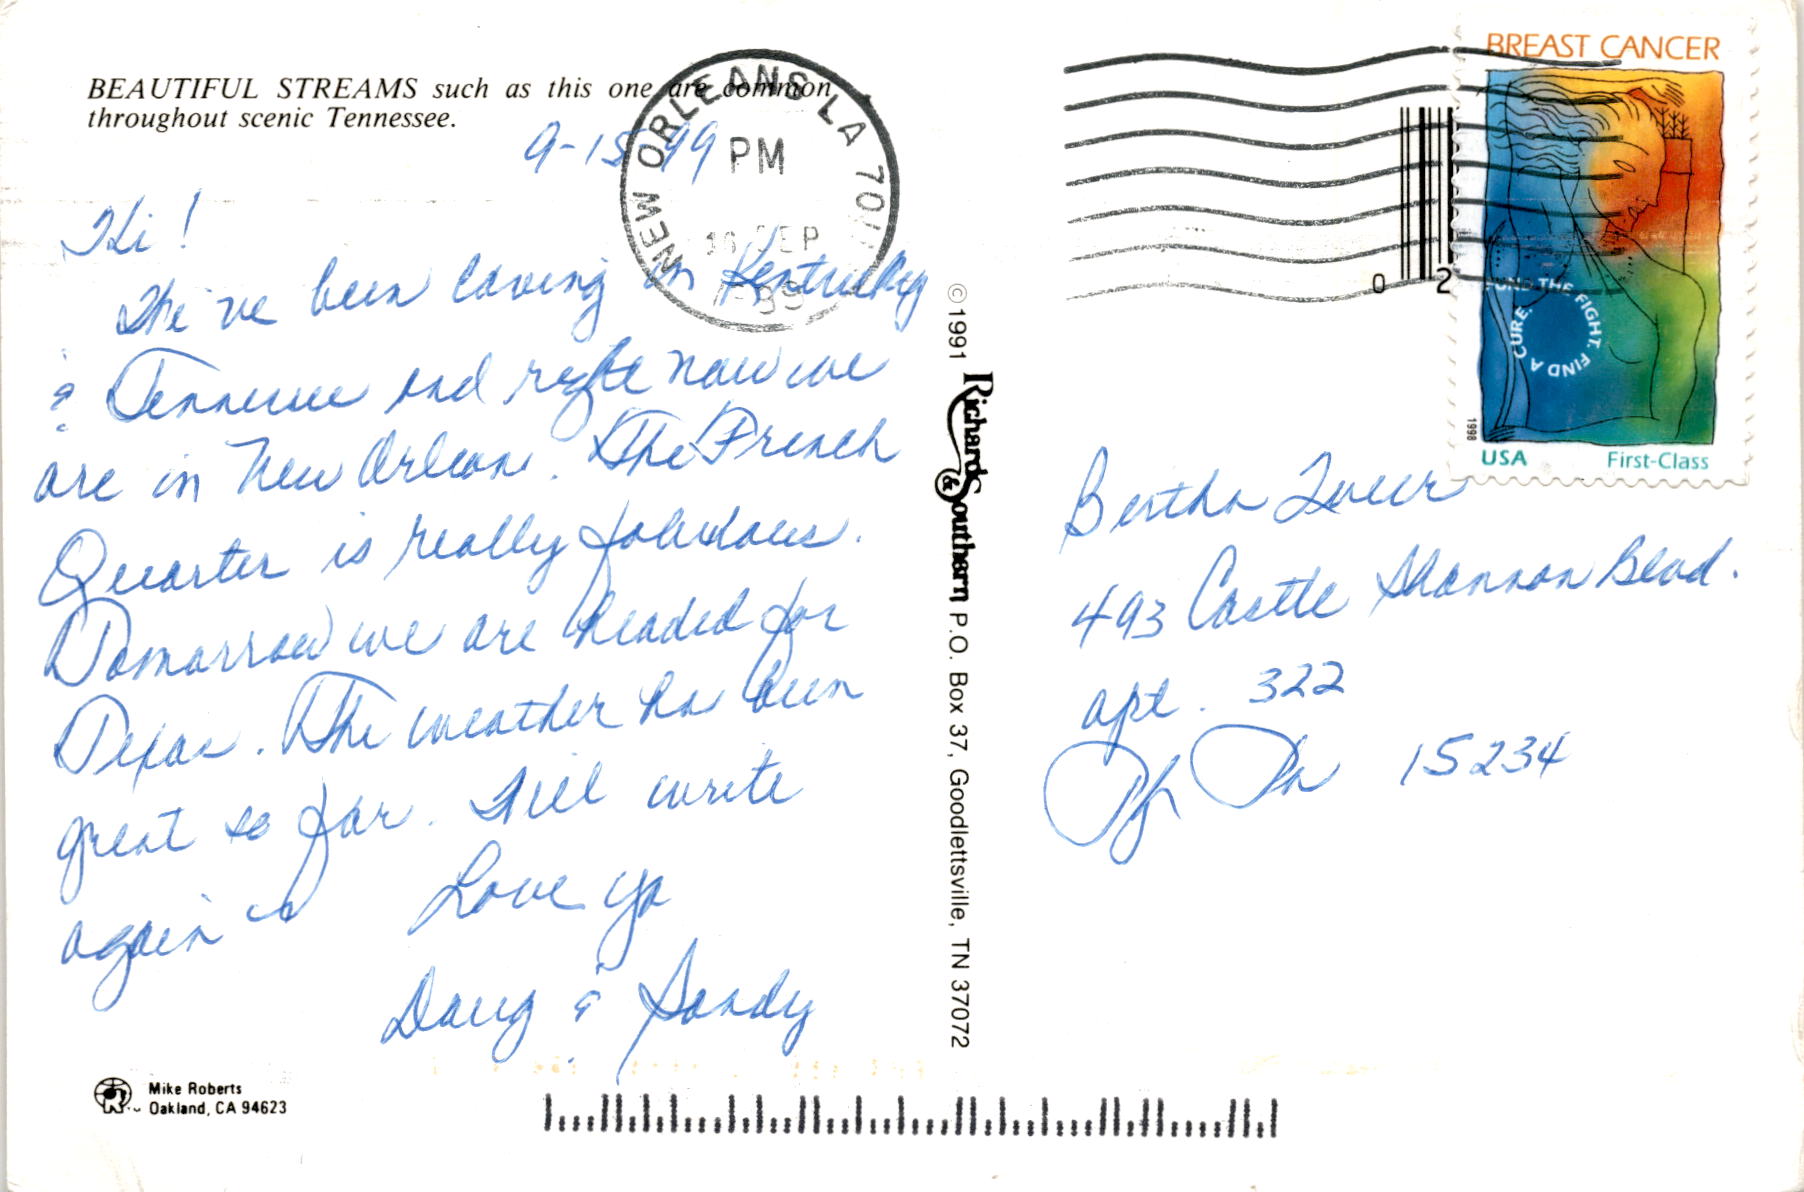 BEAUTIFUL STREAMS such as this one are common
throughout scenic Tennessee.
9-15-99
Hi!
We've been caving in Kentucky
& Tennessee and right now we
are in New Orleans. The French
Quarter is really fabulous.
Tomorrow we are headed for
Texas. The weather has been
great so far. Will write
again
Love ya
Doug & Sandy
Mike Roberts
Oakland, CA 94623
©1991 Richards & Southern P.O. Box 37, Goodlettsville, TN 37072
NEW ORLEANS LA 701
PM
16 SEP
BREAST CANCER
FUND THE FIGHT. FIND A CURE.
1998
USA First-Class
0 2
Bertha
493 Castle Shannon Blvd.
apt. 322
Pgh Pa 15234